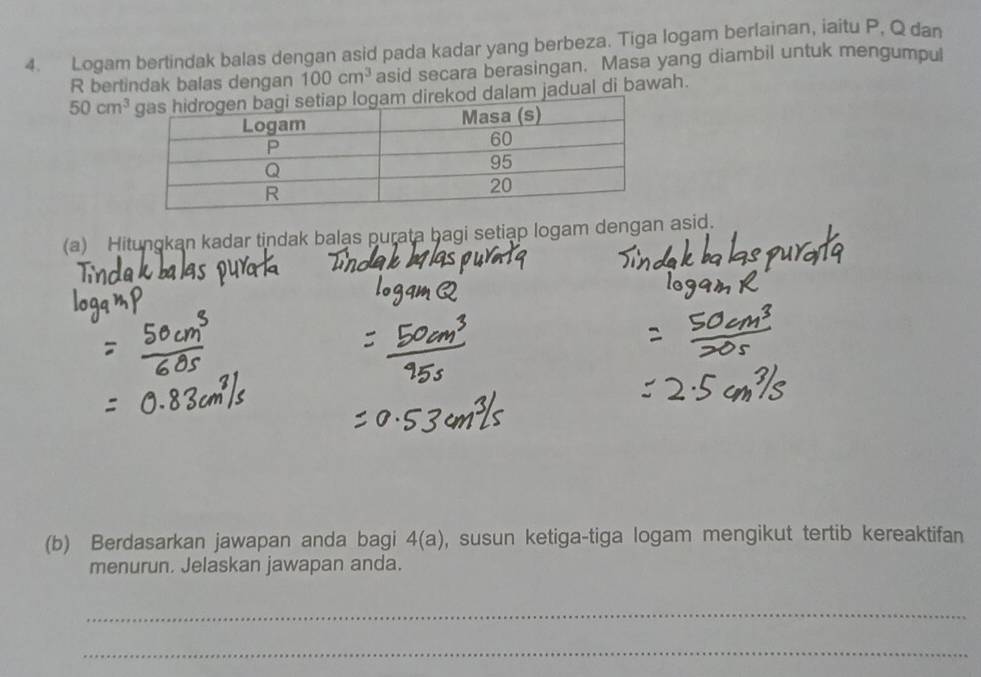 4. Logam bertindak balas dengan asid pada kadar yang berbeza. Tiga logam berlainan, iaitu P, Q dan
R bertindak balas dengan 100 cm³ asid secara berasingan. Masa yang diambil untuk mengumpul
50 cm³ gas hidrogen bagi setiap logam direkod dalam jadual di bawah.
Logam Masa (s)
P 60
Q 95
R 20
(a) Hitungkan kadar tindak balas purata bagi setiap logam dengan asid.
Tindak balas purata Tindak balas purata Tindak balas purata
logam P logam Q logam R
= 50cm³ = 50cm³ = 50cm³
60s 95s 20s
= 0.83cm³/s = 0.53cm³/s = 2.5 cm³/s
(b) Berdasarkan jawapan anda bagi 4(a), susun ketiga-tiga logam mengikut tertib kereaktifan
menurun. Jelaskan jawapan anda.